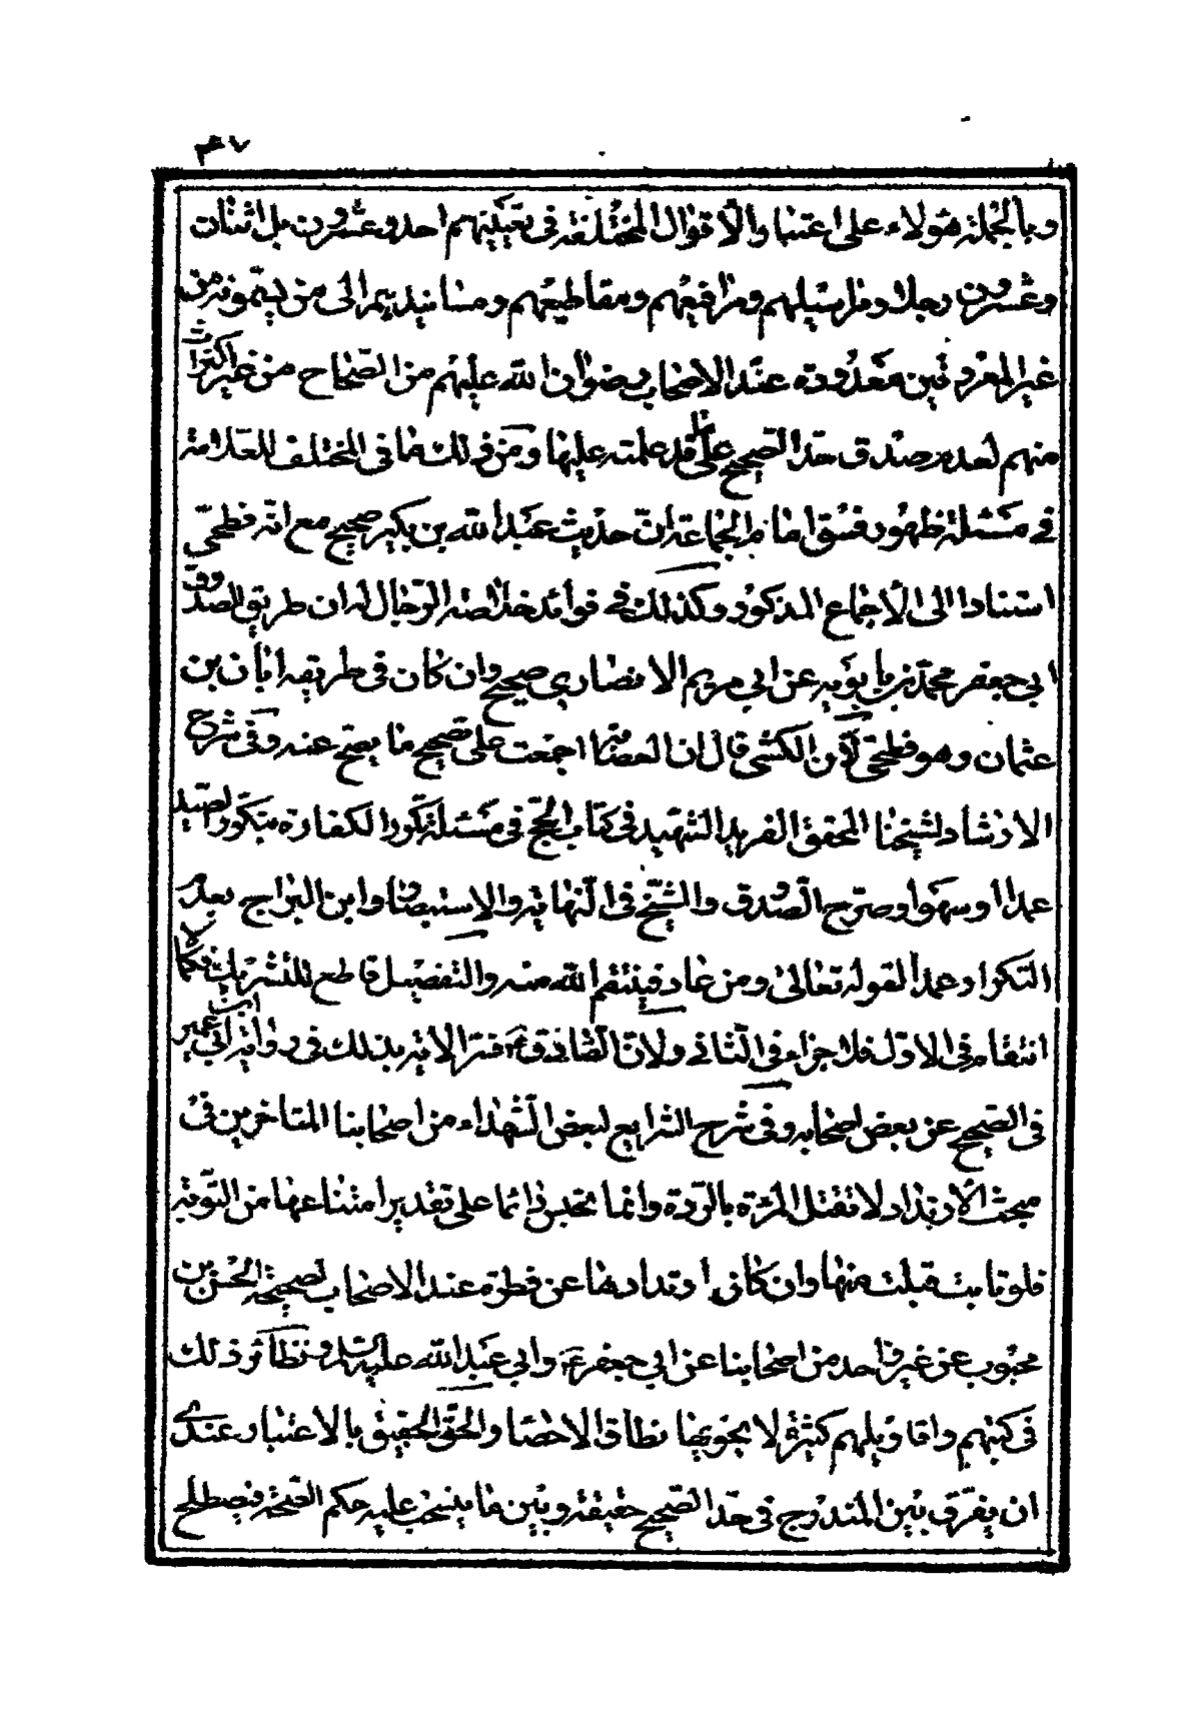 ۴۷
وبالجملة هؤلاء على اعتبار الأقوال المختلفة في تعيينهم احد وعشرون بل اثنان
وعشرون رجلا ومراسيلهم ومرافيعهم ومقاطيعهم ومسانيدهم الى من يسمونه من
غير المعروفين معدودة عند الاصحاب رضوان الله عليهم من الصحاح من غير اكتراث
منهم لعدم صدق حد الصحيح على ما قد علمته عليها ومن ذلك ما في المختلف للعلامة
في مسئلة ظهور فسق امام الجماعة ان حديث عبد الله بن بكير صحيح مع انه فطحي
استنادا الى الاجماع المذكور وكذلك في فوائد خلاصة الرجال له ان طريق الصدوق
ابي جعفر محمد بن بابويه عن ابي مريم الانصاري صحيح وان كان في طريقه ابان بن
عثمان وهو فطحي لان الكشي قال ان العصابة اجمعت على تصحيح ما يصح عنه وفي شرح
الارشاد لشيخنا المحقق الفريد الشهيد في كتاب الحج في مسئلة تكرر الكفارة بتكرر الصيد
عمدا او سهوا وصرح الصدوق والشيخ في النهاية والاستبصار وابن البراج بعدم
التكرار عمدا لقوله تعالى ومن عاد فينتقم الله منه والتفصيل قاطع للتشريك فكما لا
انتقام في الاول فلا جزاء في الثاني ولان الصادق ع فسر الاية بذلك في رواية ابن ابي عمير
في الصحيح عن بعض اصحابه وفي شرح الشرايع لبعض الشهداء من اصحابنا المتاخرين في
مبحث الارتداد لا تقتل المرئة بالردة وانما تحبس دائما على تقدير امتناعها من التوبة
فلو تابت قبلت منها وان كان ارتدادها عن فطرة عند الاصحاب لصحيحة الحسن بن
محبوب عن غير واحد من اصحابنا عن ابي جعفر ع وابي عبد الله عليه السلام ونظائر ذلك
في كتبهم واقاويلهم كثيرة لا يحويها نطاق الاحصاء والحق الحقيق بالاعتبار عندي
ان يفرق بين المندرج في حد الصحيح حقيقة وبين ما ينسحب عليه حكم الصحة فيصطلح